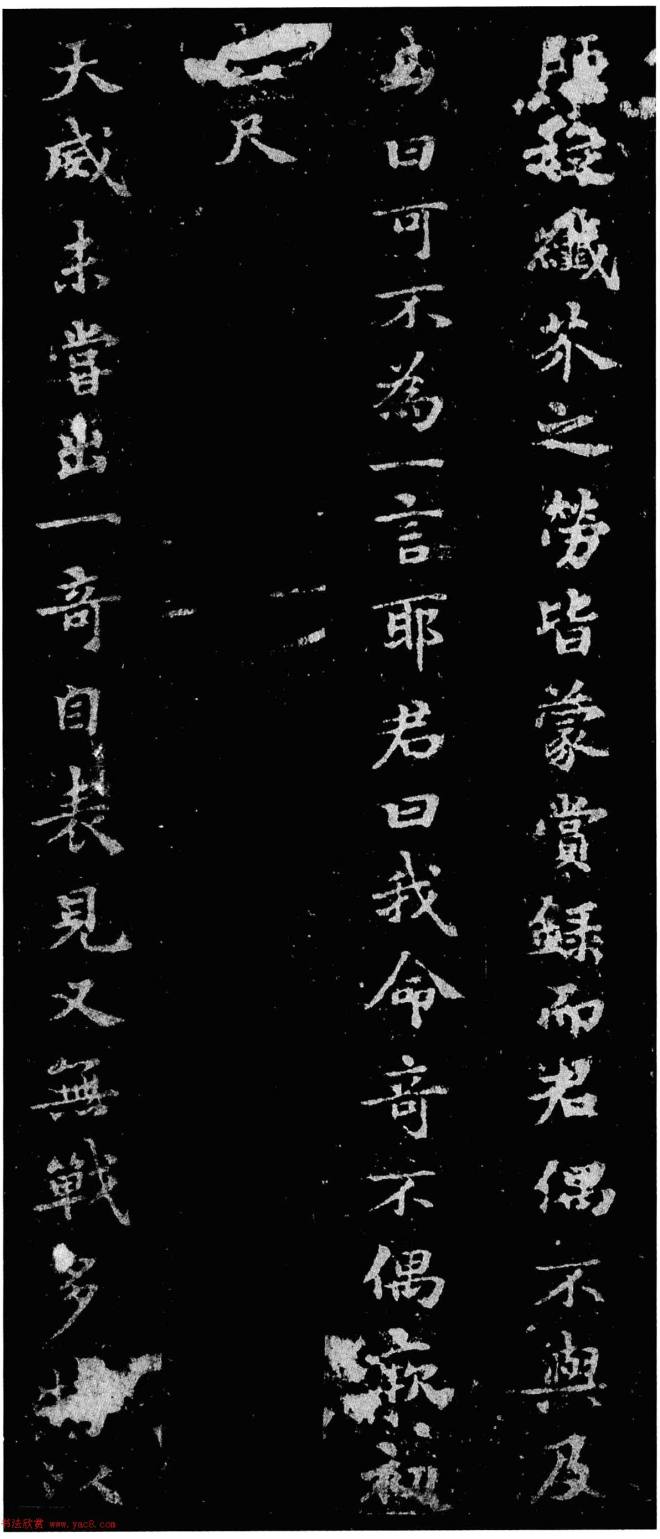 纖芥之勞皆蒙賞録而君偶不與及
曰可不為一言耶君曰我命奇不偶初
尺
天威未嘗出一奇自表見又無戰多
书法欣赏 www.yac8.com